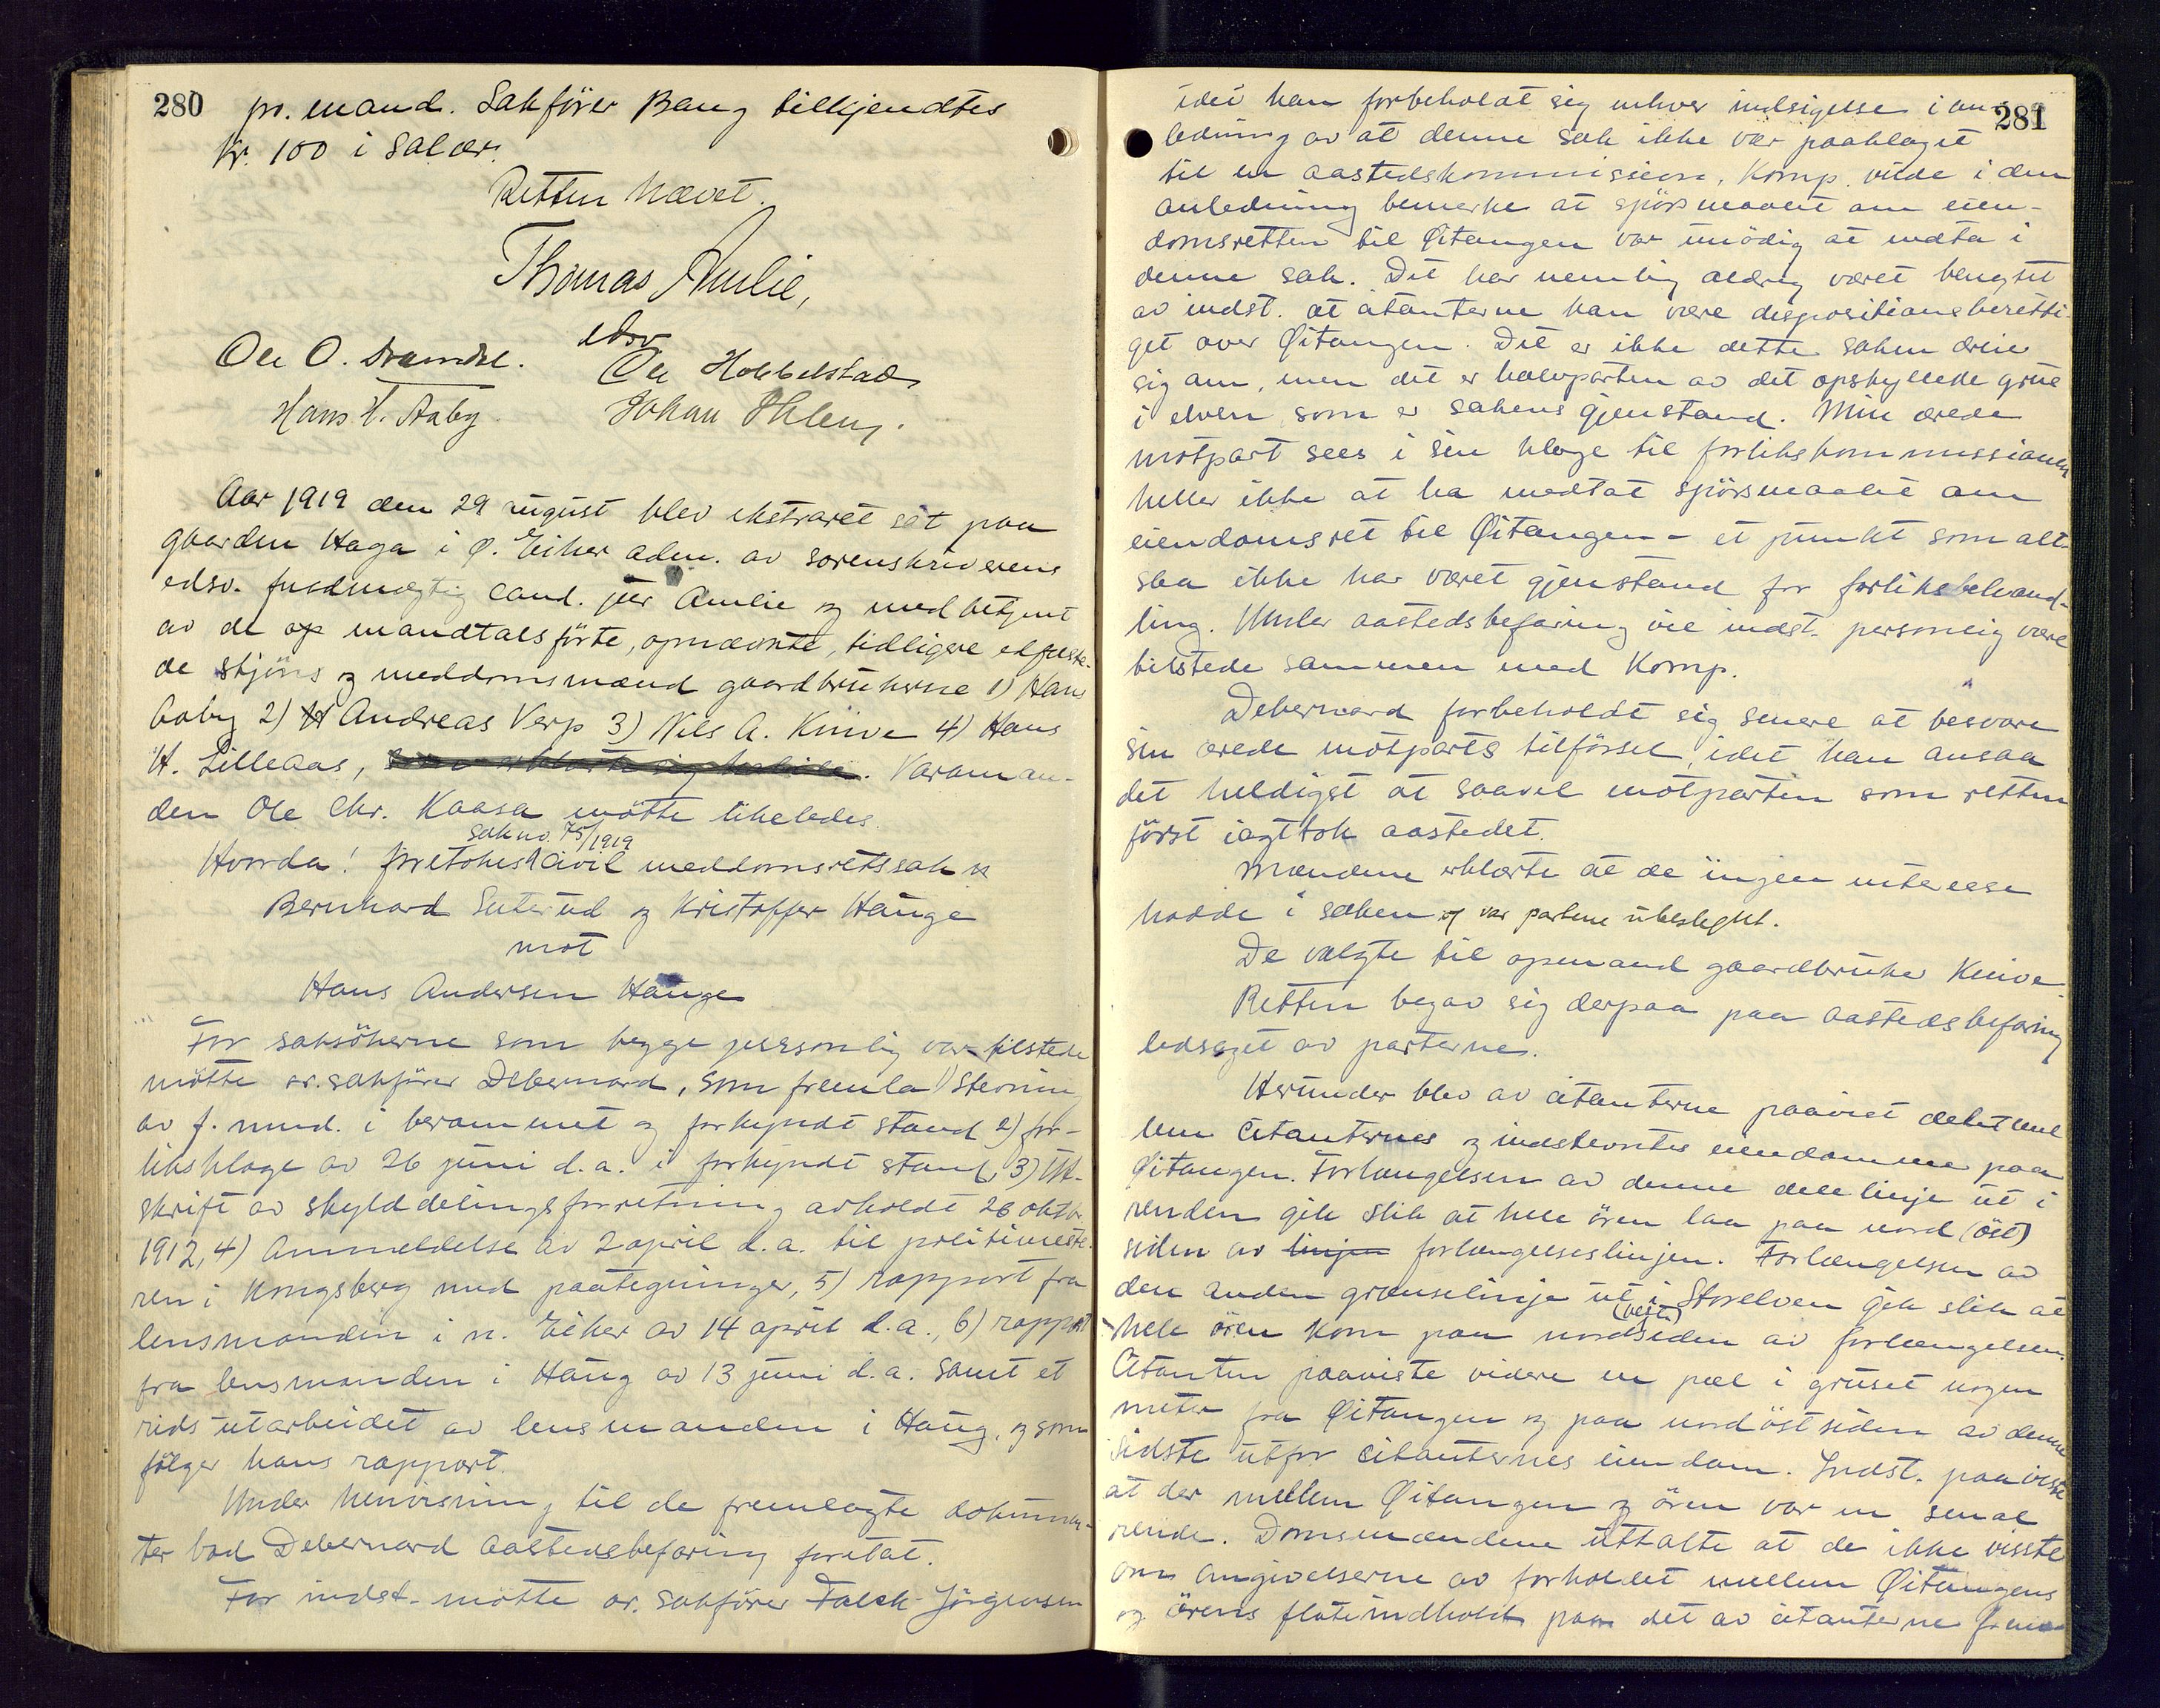 280
pr. mand. Sakfører Bang tilkjendtes
kr. 100 i salær.
Retten hævet.
Thomas Amlie,
edsv
Ole O. Ole Hobbelstad
Hans H. Aaby. Johan Ihlen,.
Aar 1919 den 29 august blev ekstraret sat paa
gaarden Haga i Ø. Eiker adm. av sorenskriverens
edsv. fuldmægtig cand. jur Amlie og med betjent
av de op mandtalsførte, opnævnte, tidligere edfæste-
de skjøns og meddomsmænd gaardbrukerne 1) Hans
Aaby 2) Andreas Verp 3) Nils A. Knive 4) Hans
H. Lilleaas, . Varaman-
den Ole Chr. Kaasa møtte likeledes.
sak no. 75/1919
Hvorda! foretokes civil meddomsretssak
Bernhard Seterud og Kristoffer Hauge
mot
Hans Andersen Hauge
For saksökerne som begge personlig var tilstede
mötte or. sakförer Debernard, som fremla 1) stevning
av f. mnd. i berammet og forkyndt stand 2) for-
liksklage av 26 juni d.a. i forkyndt stand, 3) Ut-
skrift av skylddelingsforretning avholdt 26 oktbr
1912, 4) Anmeldelse av 2 april d.a. til politimeste-
ren i Kongsberg med paategninger, 5) rapport fra
lensmanden i n. Eiker av 14 april d.a., 6) rapport
fra lensmanden i Haug av 13 juni d.a. samt et
rids utarbeidet av lensmanden i Haug, og som
fölger hans rapport.
Under henvisning til de fremlagte dokumen-
ter bad Debernard aastedsbefaring foretat.
For indst. mötte or. sakförer Falck-Jörgensen
281
idet han forbeholdt sig enhver indsigelse i an-
ledning av at denne sak ikke var paaklaget
til en aastedskommission. Komp. vilde i den
anledning bemerke at spörsmaalet om eien-
domsretten til Øitangen var unödig at indta i
denne sak. Det har nemlig aldrig været benegtet
av indst. at citanterne kan være dispositionsberetti-
get over Øitangen. Det er ikke dette saken dreier
sig om, men det er halvparten av det opskyllede grus
i elven som er sakens gjenstand. Min ærede
motpart sees i sin klage til forlikskommissionen
heller ikke at ha medtat spörsmaalet om
eiendomsret til Øitangen – et punkt som alt-
saa ikke har været gjenstand for forliksbehand-
ling. Under aastedsbefaring vil indst. personlig være
tilstede sammen med Komp.
Debernard forbeholdt sig senere at besvare
sin ærede motparts tilförsel, idet han ansaa
det heldigst at saavel motparten som retten
först iagttok aastedet.
Mændene erklærte at de ingen interesse
hadde i saken og var partene ubeslegtet.
De valgte til opmand gaardbruker Knive.
Retten begav sig derpaa paa aastedsbefaring
ledsaget av parterne.
Herunder blev av citanterne paavist delet mel
lem citanternes og indstevntes eiendomme paa
Øitangen. Forlængelsen av denne dele linje ut i
renden gik slik at hele ören laa paa nord (öst)
siden av linjen forlængelseslinjen. Forlængelsen av
den anden grænselinje ut i Storelven gik slik at
(vest)
hele ören kom paa nordsiden av forlængelsen.
Citanten paaviste videre en pæl i gruset nogen
meter fra Øitangen og paa nordöstsiden av denne
sidste utfor citanternes eiendom. Indst. paaviste
at der mellem Øitangen og ören var en smal
rende. Domsmændene uttalte at de ikke visste
om angivelserne av forholdet mellem Øitangens
og örens flateindhold paa det av citanterne frem-